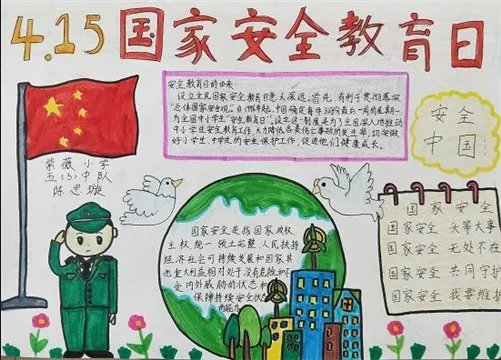 4.15国家安全教育日
安全教育日的由来
设立全民国家安全教育日意义深远。首先,有利于贯彻落实
"总体国家安全观。"自1996年起,中国确定每年3月份最后一周的星期一
为全国中小学生"安全教育日"。设立这一制度是为了全国深入地推动
中小学生安全教育工作,大力降低各类伤亡事故的发生率,切实做
好小学生、中学生的安全保护工作,促进他们健康成长。
安全
中国
紫薇小学
五(3)中队
陈思璇
国家安全
国家安全 头等大事
国家安全 无处不在
国家安全 共同守护
国家安全 我要维护
国家安全是指国家政权
主权、统一、领土完整、人民扶持
经济社会可持续发展和国家其
他重大利益相对处于没有危险和不
受内外威胁的状态和
保障持续安全状态
的能力